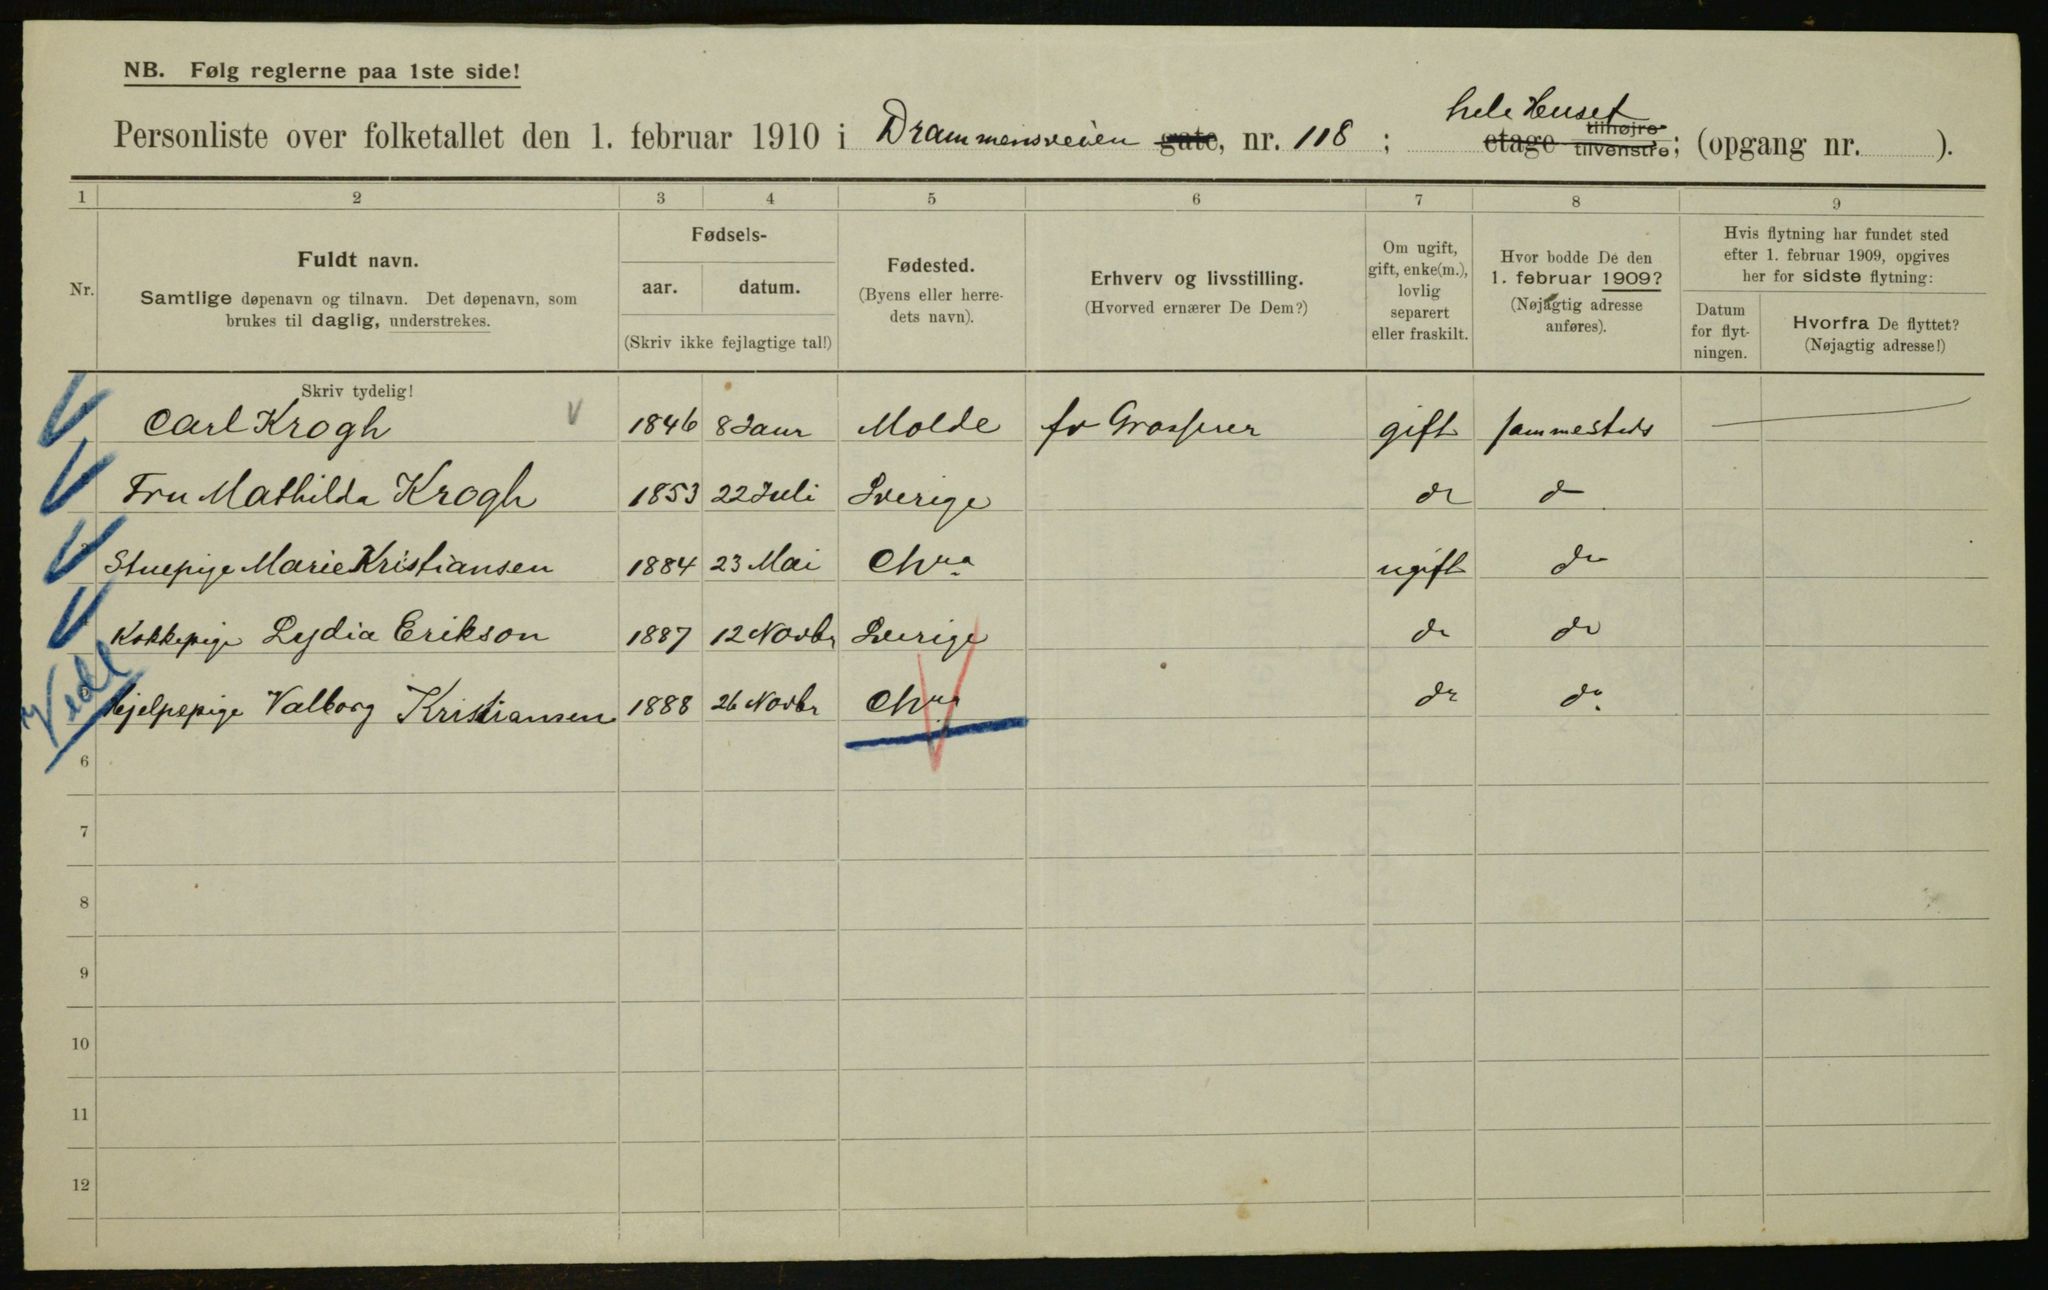 NB. Følg reglerne paa 1ste side!
hele Huset
Personliste over folketallet den 1. februar 1910 i Drammensveien gate, nr. 118 ; etage tilhøjre tilvenstre; (opgang nr. ).
1 2 3 4 5 6 7 8 9
Nr.
Fuldt navn.
Samtlige døpenavn og tilnavn. Det døpenavn, som
brukes til daglig, understrekes.
Fødsels-
aar. datum.
(Skriv ikke fejlagtige tal!)
Fødested.
(Byens eller herre-
dets navn).
Erhverv og livsstilling.
(Hvorved ernærer De Dem?)
Om ugift,
gift, enke(m.),
lovlig
separert
eller fraskilt.
Hvor bodde De den
1. februar 1909?
(Nøjagtig adresse
anføres).
Hvis flytning har fundet sted
efter 1. februar 1909, opgives
her for sidste flytning:
Datum
for flyt-
ningen.
Hvorfra De flyttet?
(Nøjagtig adresse!)
Skriv tydelig!
Carl Krogh 1846 8 Janr Molde fv Grosserer gift sammesteds
Fru Mathilda Krogh 1853 22 Juli Sverige do do
Stuepige Marie Kristiansen 1884 23 Mai Chra ugift do
Kokkepige Lydia Erikson 1887 12 Novbr Sverige do do
Hjelpepige Valborg Kristiansen 1888 26 Novbr Chra do do
6
7
8
9
10
11
12